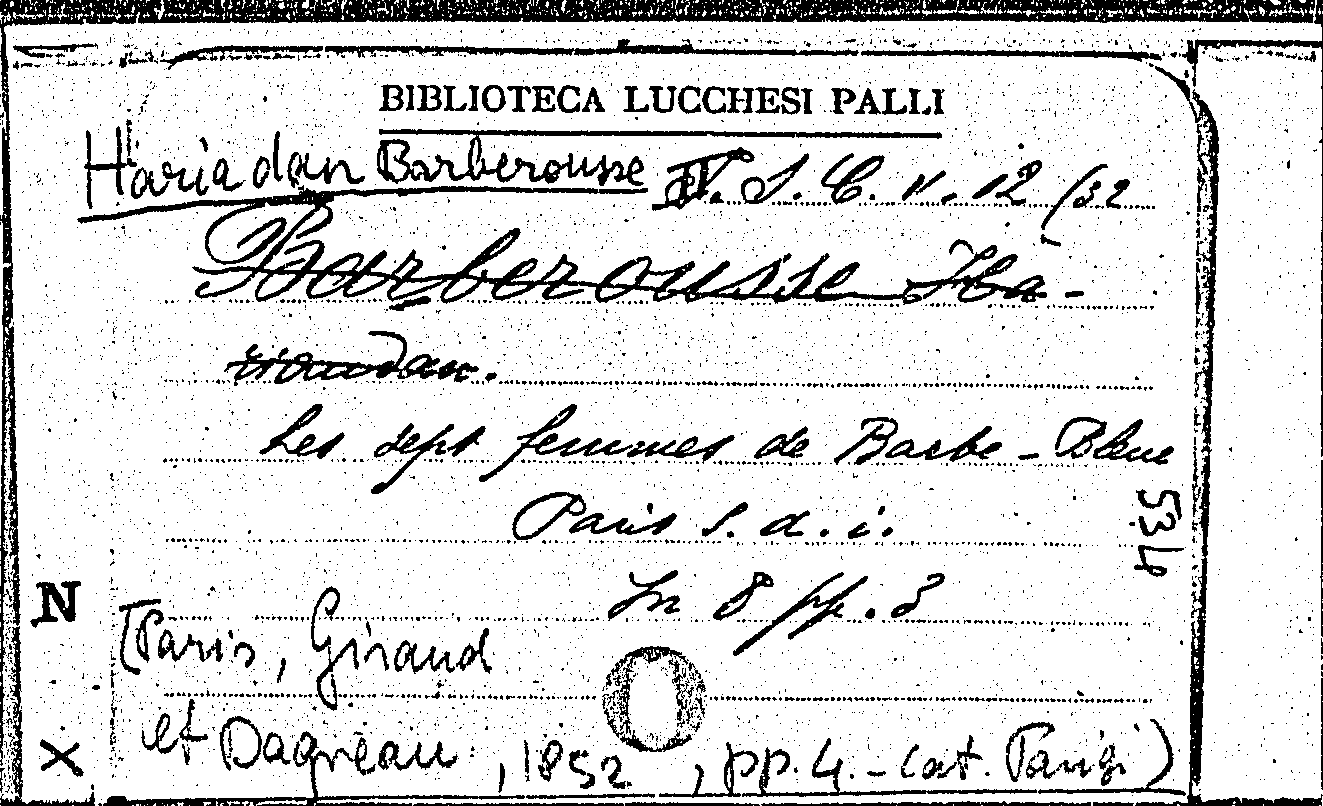 BIBLIOTECA LUCCHESI PALLI
Hariadan Barberousse F. S. C. V. 12 (32
Barberousse Ha-
riaudan.
Les sept femmes de Barbe-Bleue
Paris s. d. i.
534
In 8 pp. 3
N
[Paris, Giraud
et Dagneau, 1852, pp. 4. - Cat. Parigi)
X